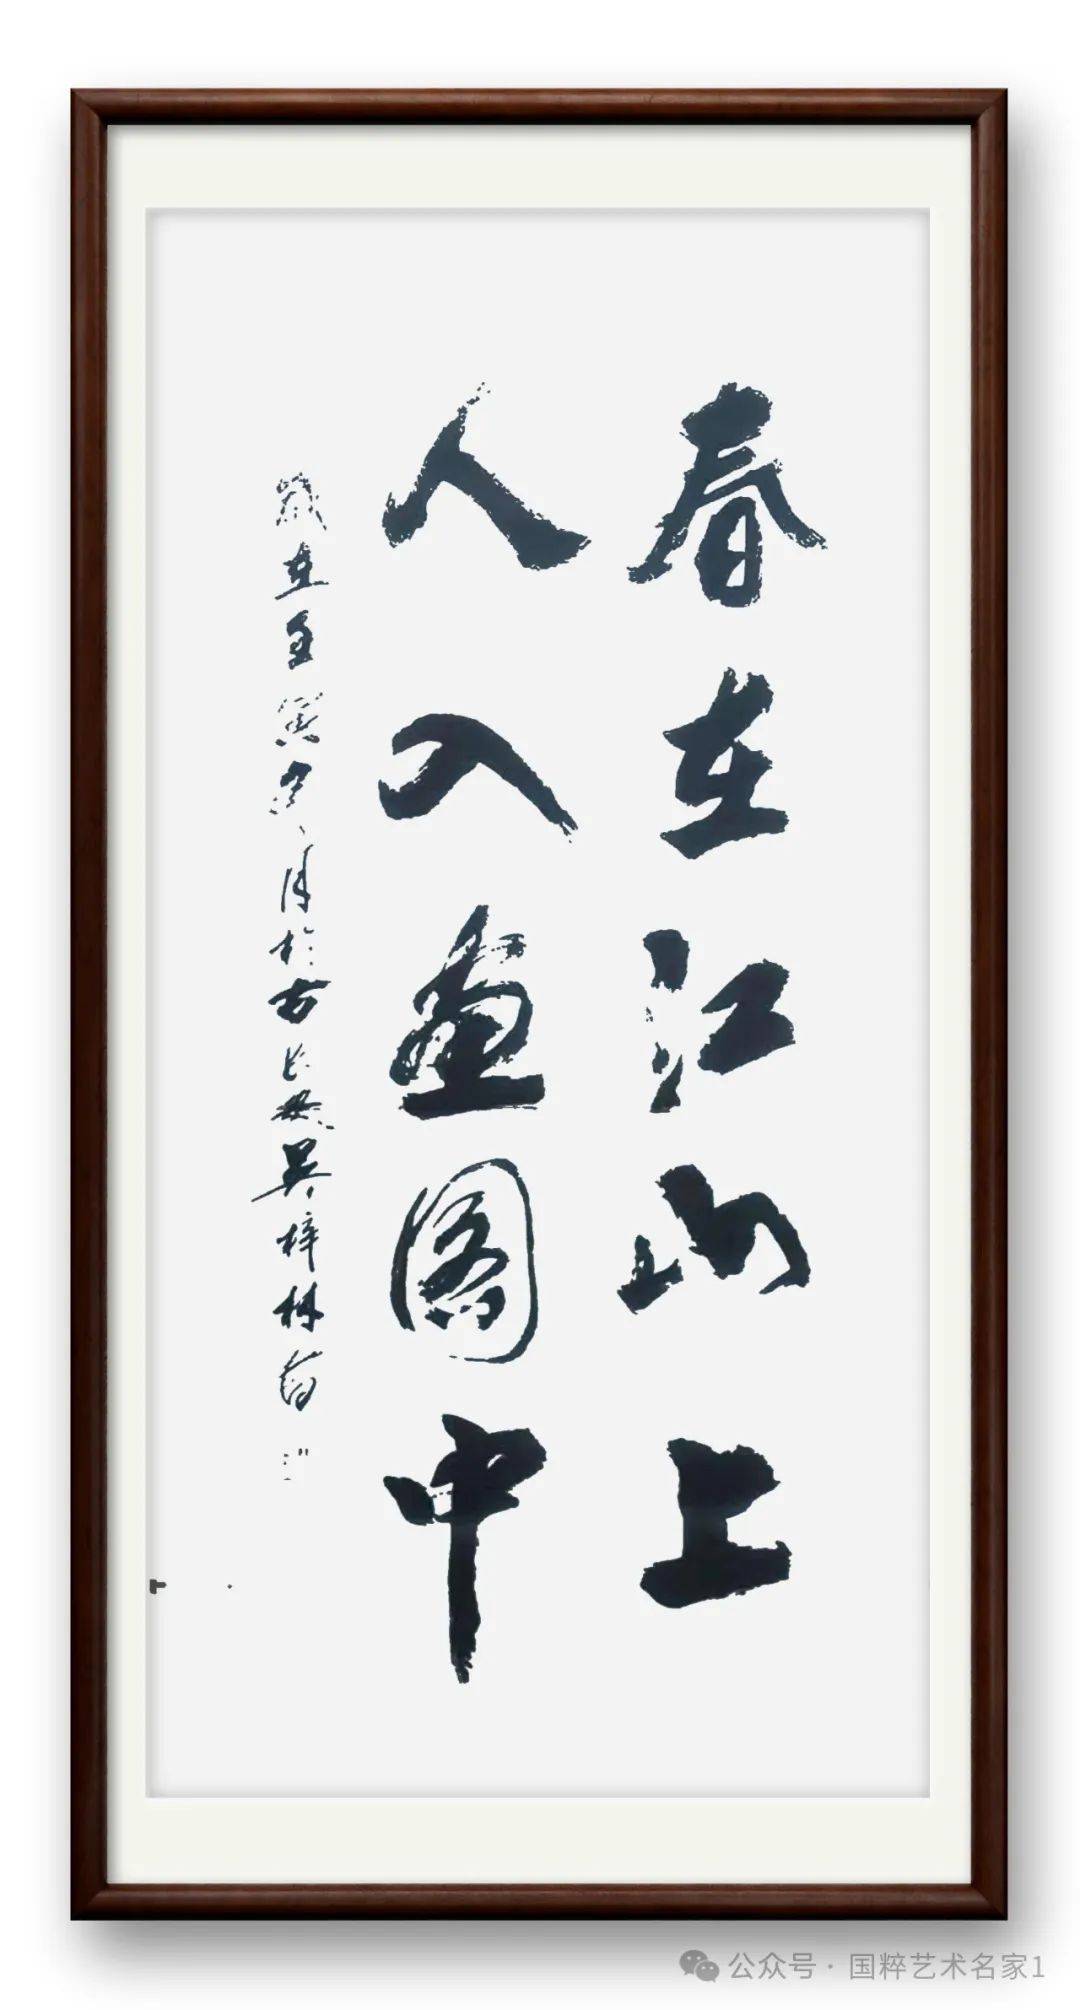 春在江山上
人入画图中
岁在壬寅冬月于古长安吴梓林书
公众号·国粹艺术名家1